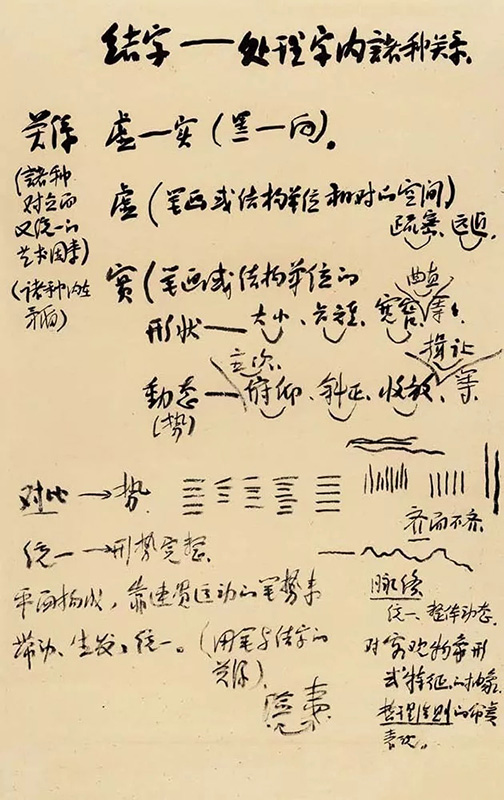 结字—处理字内諸种关系
关系 虚—实(黑—白)。
(諸种
对立而
又统一的
艺术因素)
(诸种内在
矛盾)
虚(笔画或结构单位相对的空间)
疏密、远近、
實(笔画或结构单位的
形状—大小、长短、宽窄、等)
曲直
動态—俯仰、斜正、收放、等
(势)
主次、
揖让
对比→势
齐而不齐
统一→形势完整
平面构成,靠连贯运动的笔势来
带动、生发、统一。(用笔与结字的
关系)
脉络
统一、整体动态.
对客观物象形
或特征的抽象
哲理法则的
表现。